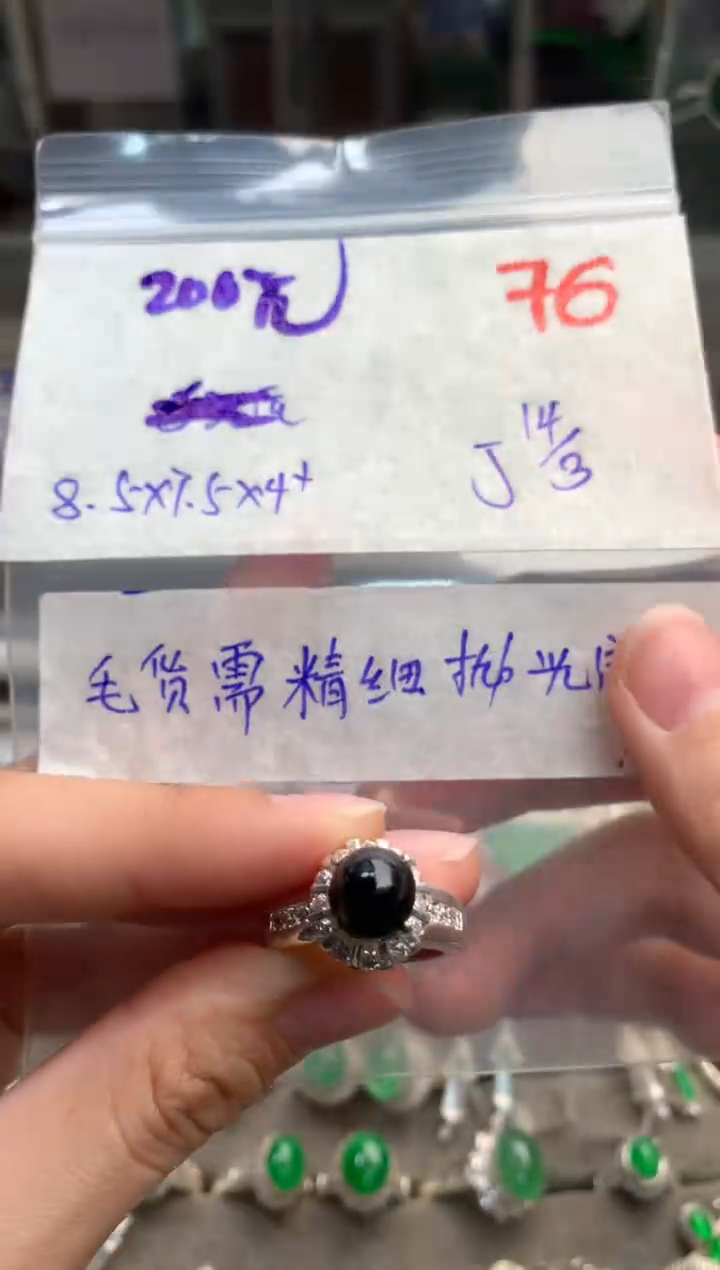 200元
76
8.5×7.5×4+
J 14/3
毛货需精细抛光